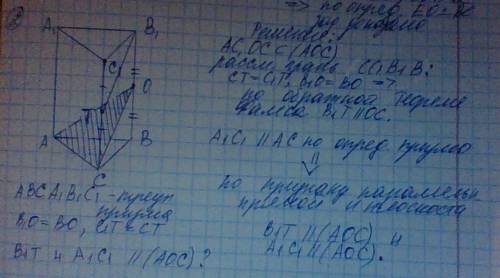 => по опред. EO =
Решение:
AC, OC ⊂ (AOC)
рассм. грань CC₁B₁B:
CT = C₁T, B₁O = BO =>
по обратной теореме
Фалеса B₁T || OC.
A₁C₁ || AC по опред. призмы
⇓
по признаку параллельн.
прямой и плоскости
B₁T || (AOC) и
A₁C₁ || (AOC).
A₁
B₁
C₁
O
T
A
B
C
ABCA₁B₁C₁ - треуг.
призма
B₁O = BO, C₁T = CT
B₁T и A₁C₁ || (AOC)?